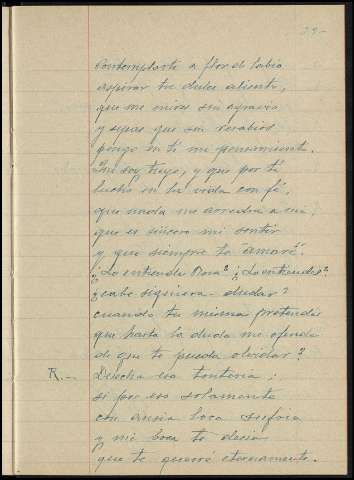 29-
Contemplarte a flor de labio
aspirar tu dulce aliento,
que me mires sin agravio
y sepas que sin resabios
pongo en ti mi pensamiento.
Que soy tuyo, y que por ti
lucho en la vida con fé,
que nada me arredra a mí,
que es sincero mi sentir
y que siempre te "amaré".
¿Lo entiende Rosa? ¿Lo entiendes?
¿cabe siquiera dudar?
cuando tu misma pretendes
que hasta la duda me ofende
de que te pueda olvidar?
R.- Desecha esa tontería;
si por eso solamente
con ansia loca sufría
y mi boca te decía
que te querré eternamente.